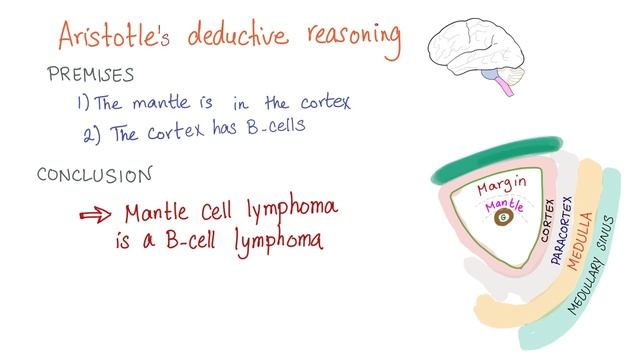 Aristotle's deductive reasoning
PREMISES
1) The mantle is in the cortex
2) The cortex has B-cells
CONCLUSION
⇒ Mantle Cell lymphoma
is a B-cell lymphoma
Margin
Mantle
G
CORTEX
PARACORTEX
MEDULLA
MEDULLARY SINUS